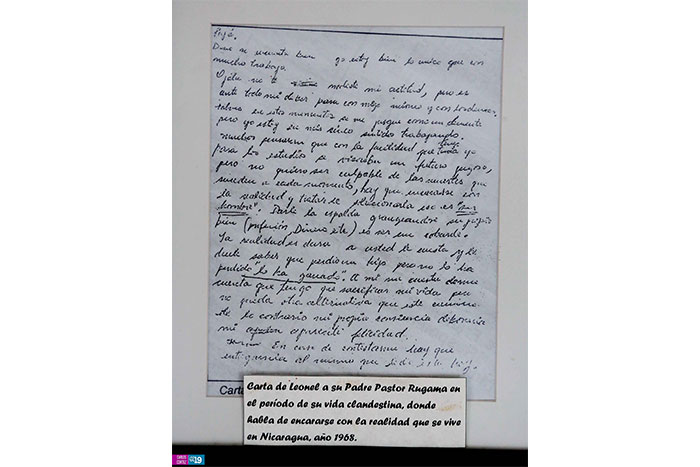 Papá.
Dime se encuentra bien yo estoy bien lo unico que con
mucho trabajo
Ojála no te moleste mi actitud, pero es
ante todo mi deber para con migo mismo y con los demas.
talvez en estos momentos se me juzgue como un demente
pero yo estoy en mis cinco sentidos trabajando.
muchos pensaran que con la facilidad que tengo yo
para los estudios se vizoraba un futuro
pero no quiero ser culpable de las muertes que
suceden a cada momento, hay que encararse con
la realidad y tratar de solucionarla eso es "ser
hombre". Darle la espalda grangeandose su propio
bien (profesión, Dinero etc) es ser un cobarde.
La realidad es dura a usted le cuesta y le
duele saber que perdio un hijo pero no lo ha
perdido "lo ha ganado". A mi me cuesta darme
cuenta que tengo que sacrificar mi vida pero
no queda otra alternativa que este
de lo contrario mi propia conciencia
mi felicidad.
En caso de contestarme hay que
entregarsela al mismo que
Carta
Carta de Leonel a su Padre Pastor Rugama en
el período de su vida clandestina, donde
habla de encararse con la realidad que se vive
en Nicaragua, año 1968.
CARLOS CORTEZ 19